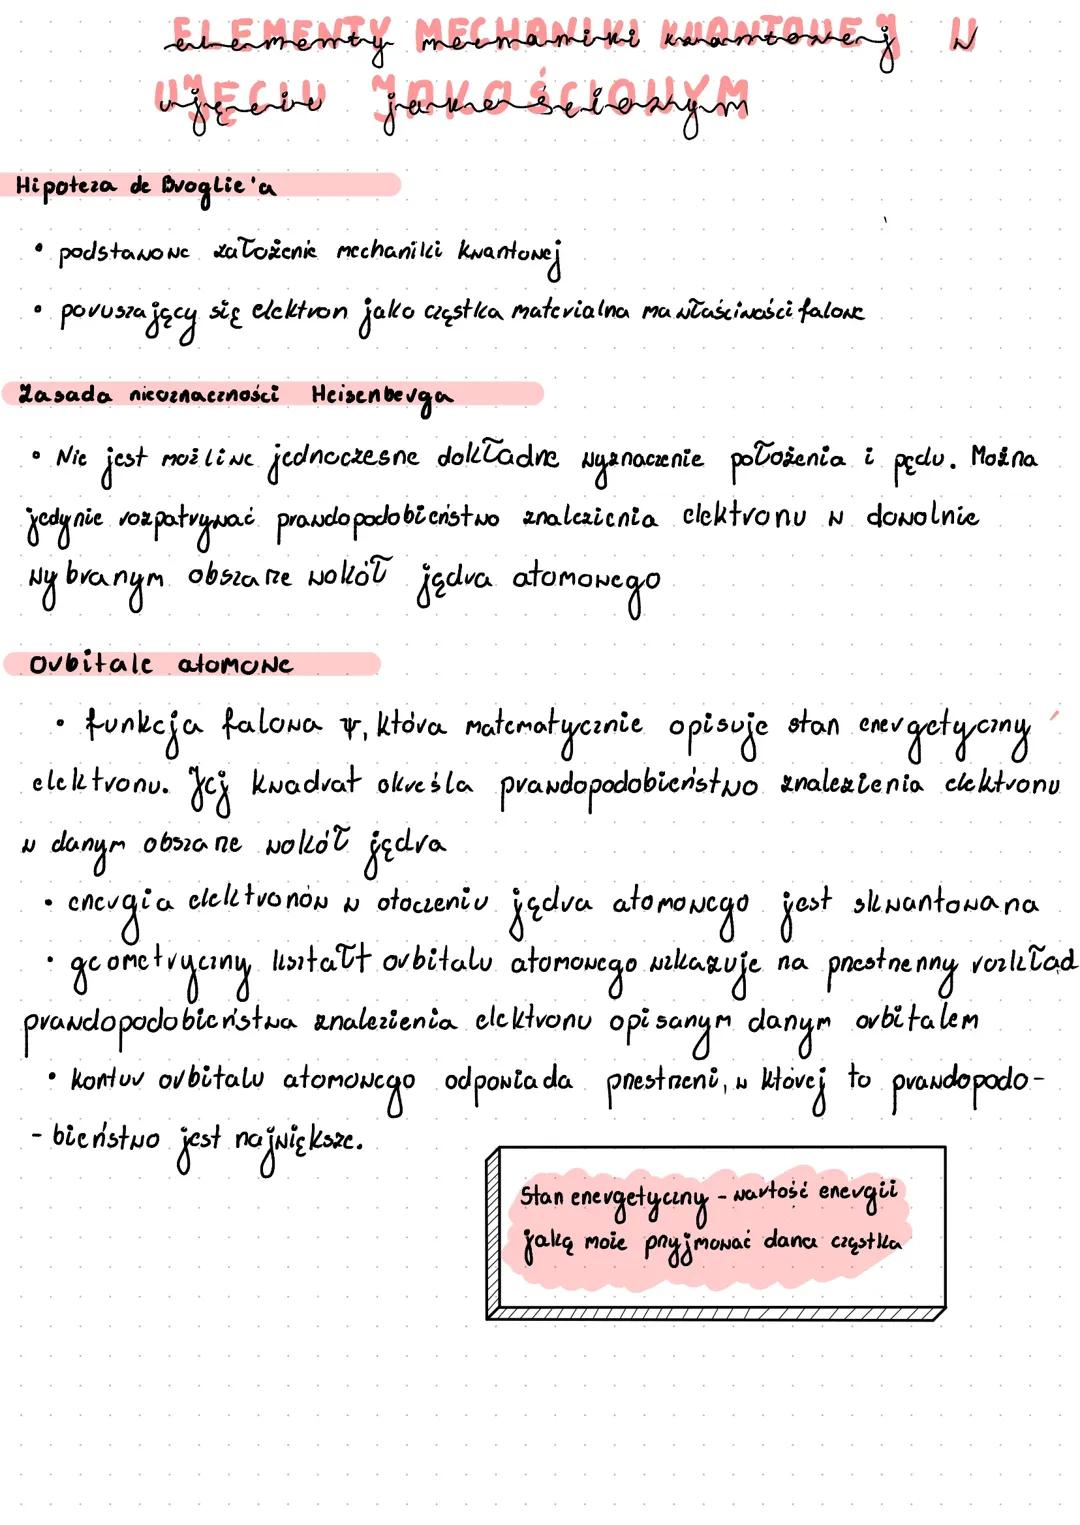 ELEMENTY MECHANIKI KWANTOWEJ W
elementy mechaniki kwantowej
UJĘCIU JAKOŚCIOWYM
ujęciu jakościowym
Hipoteza de Broglie'a
• podstawowe założenie mechaniki kwantowej
• poruszający się elektron jako cząstka materialna ma właściwości falowe
Zasada nieoznaczności Heisenberga
• Nie jest możliwe jednoczesne dokładne wyznaczenie położenia i pędu. Można
jedynie rozpatrywać prawdopodobieństwo znalezienia elektronu w dowolnie
wybranym obszarze wokół jądra atomowego
Orbitale atomowe
• funkcja falowa ψ, która matematycznie opisuje stan energetyczny
elektronu. Jej kwadrat określa prawdopodobieństwo znalezienia elektronu
w danym obszarze wokół jądra
• energia elektronów w otoczeniu jądra atomowego jest skwantowana
• geometryczny kształt orbitalu atomowego wskazuje na przestrzenny rozkład
prawdopodobieństwa znalezienia elektronu opisanym danym orbitalem
• kontur orbitalu atomowego odpowiada przestrzeni, w której to prawdopodo-
-bieństwo jest największe.
Stan energetyczny - wartość energii
jaką może przyjmować dana cząstka